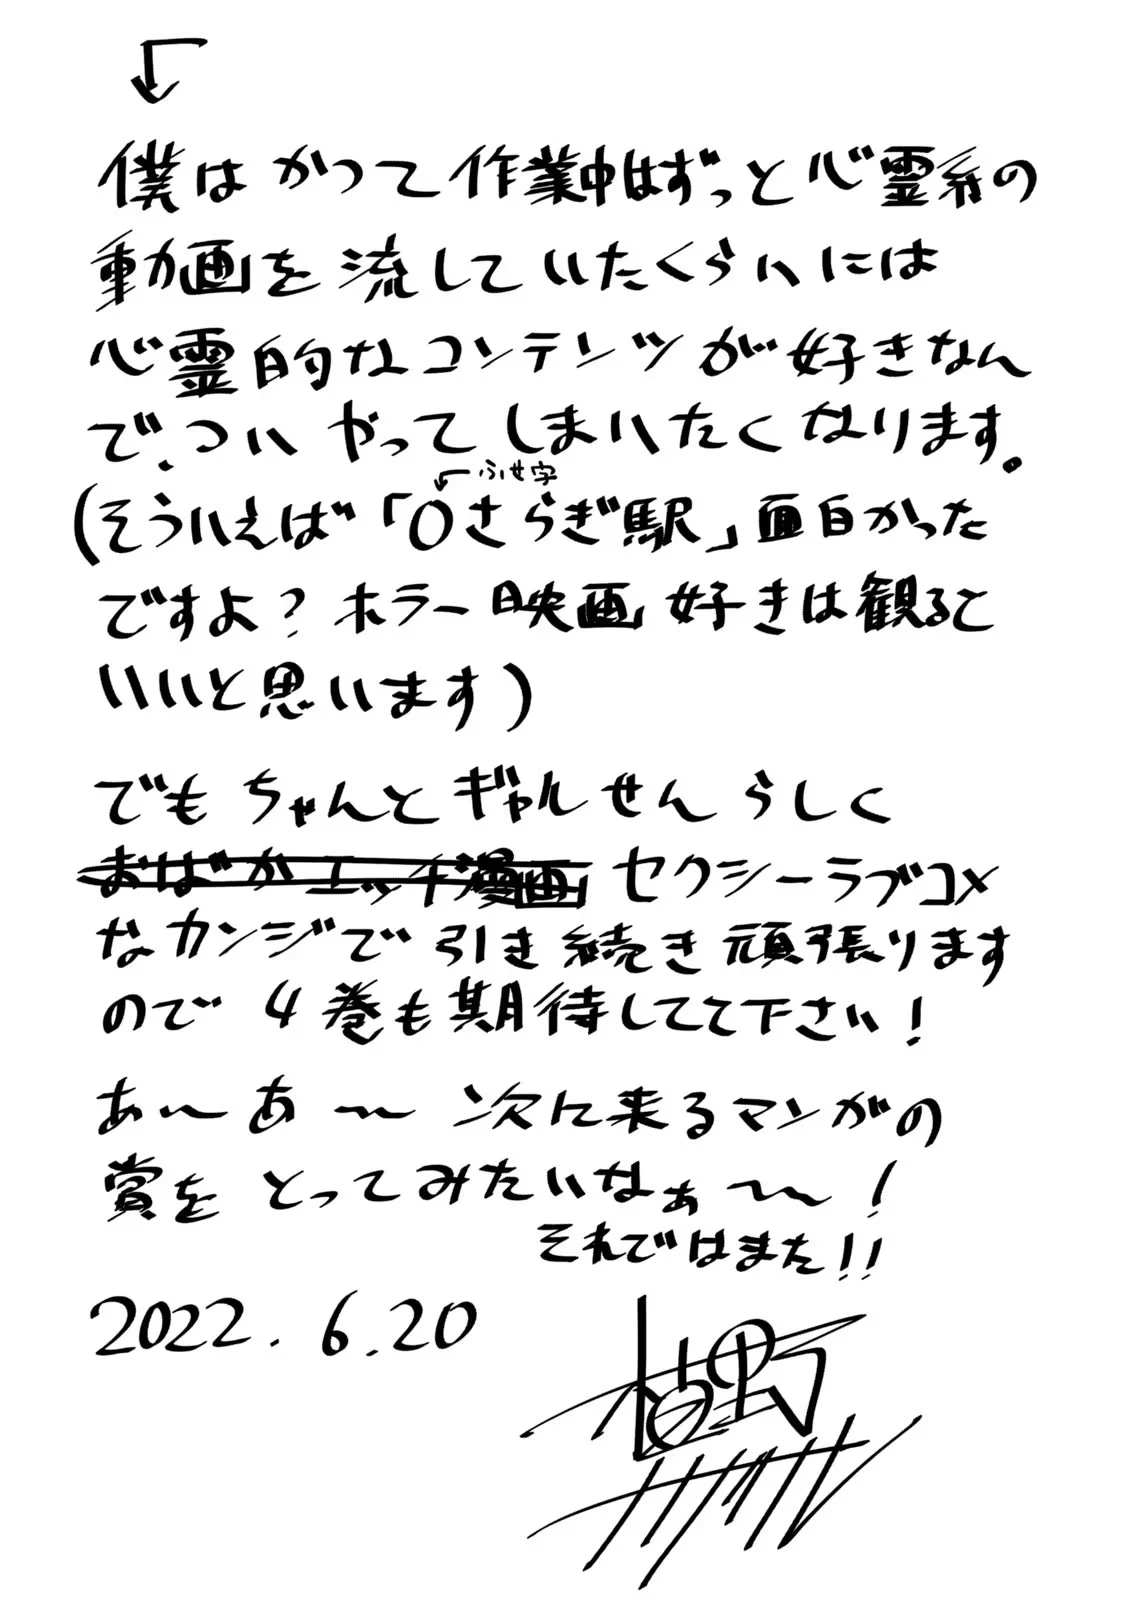 僕はかつて作業中はずっと心霊系の
動画を流していたくらいには
心霊的なコンテンツが好きなん
で、ついやってしまいたくなります。
←ふせ字
(そういえば「〇さらぎ駅」面白かった
ですよ?ホラー映画好きは観ると
いいと思います)
でもちゃんとギャルせんらしく
おばかエッチ漫画 セクシーラブコメ
なカンジで引き続き頑張ります
ので4巻も期待してて下さい!
あ〜あ〜次に来るマンガの
賞をとってみたいなぁ〜!
それではまた!!
2022.6.20
植野